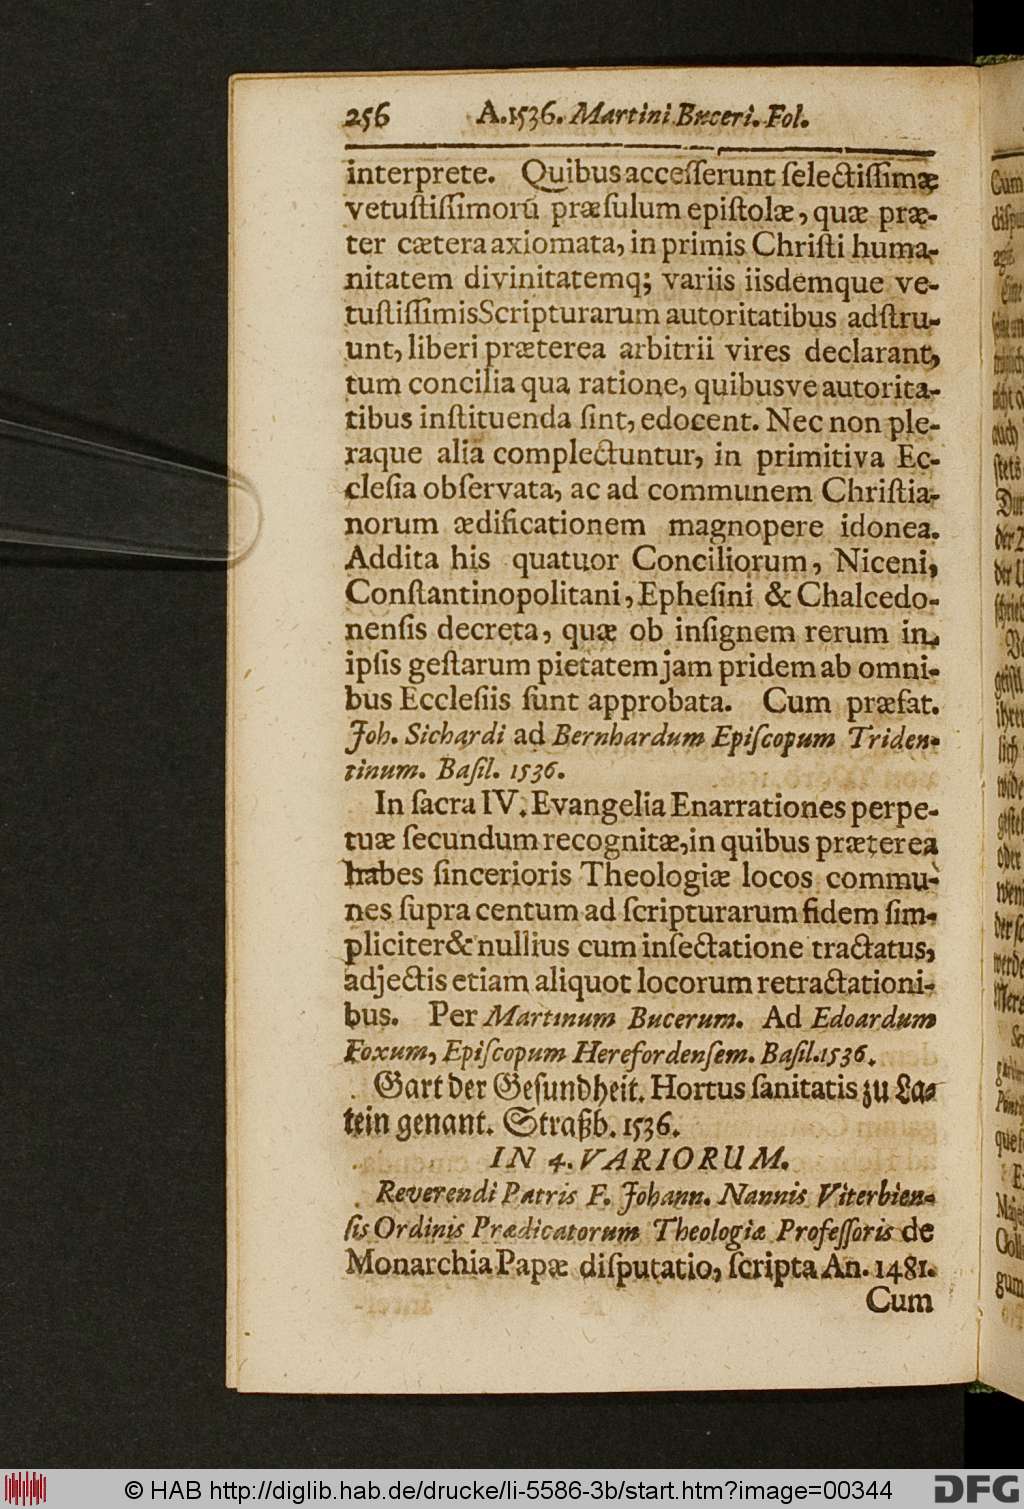 256 A.1536. Martini Buceri. Fol.
interprete. Quibus accesſerunt ſelectiſſimæ
vetuſtiſſimorū præſulum epiſtolæ, quæ præ-
ter cætera axiomata, in primis Chriſti huma-
nitatem divinitatemq; variis iisdemque ve-
tuſtiſſimis Scripturarum autoritatibus adſtru-
unt, liberi præterea arbitrii vires declarant,
tum concilia qua ratione, quibusve autorita-
tibus inſtituenda ſint, edocent. Nec non ple-
raque alia complectuntur, in primitiva Ec-
cleſia obſervata, ac ad communem Chriſtia-
norum ædificationem magnopere idonea.
Addita his quatuor Conciliorum, Niceni,
Conſtantinopolitani, Epheſini & Chalcedo-
nenſis decreta, quæ ob inſignem rerum in
ipſis geſtarum pietatem jam pridem ab omni-
bus Eccleſiis ſunt approbata. Cum præfat.
Joh. Sichardi ad Bernhardum Epiſcopum Triden-
tinum. Baſil. 1536.
In ſacra IV. Evangelia Enarrationes perpe-
tuæ ſecundum recognitæ, in quibus præterea
habes ſincerioris Theologiæ locos commu-
nes ſupra centum ad ſcripturarum fidem ſim-
pliciter & nullius cum inſectatione tractatus,
adjectis etiam aliquot locorum retractationi-
bus. Per Martinum Bucerum. Ad Edoardum
Foxum, Epiſcopum Herefordenſem. Baſil. 1536.
Gart der Geſundheit. Hortus ſanitatis zu La-
tein genant. Straßb. 1536.
IN 4. VARIORUM.
Reverendi Patris F. Johann. Nannis Viterbien-
ſis Ordinis Prædicatorum Theologiæ Profeſſoris de
Monarchia Papæ diſputatio, ſcripta An. 1481.
Cum
© HAB http://diglib.hab.de/drucke/li-5586-3b/start.htm?image=00344
DFG